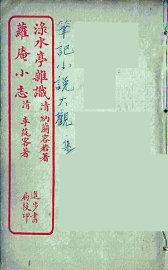 筆記小説大觀 集
淥水亭雜識 清 納蘭容若著
蘿庵小志 清 李 客著
進步書
局校印